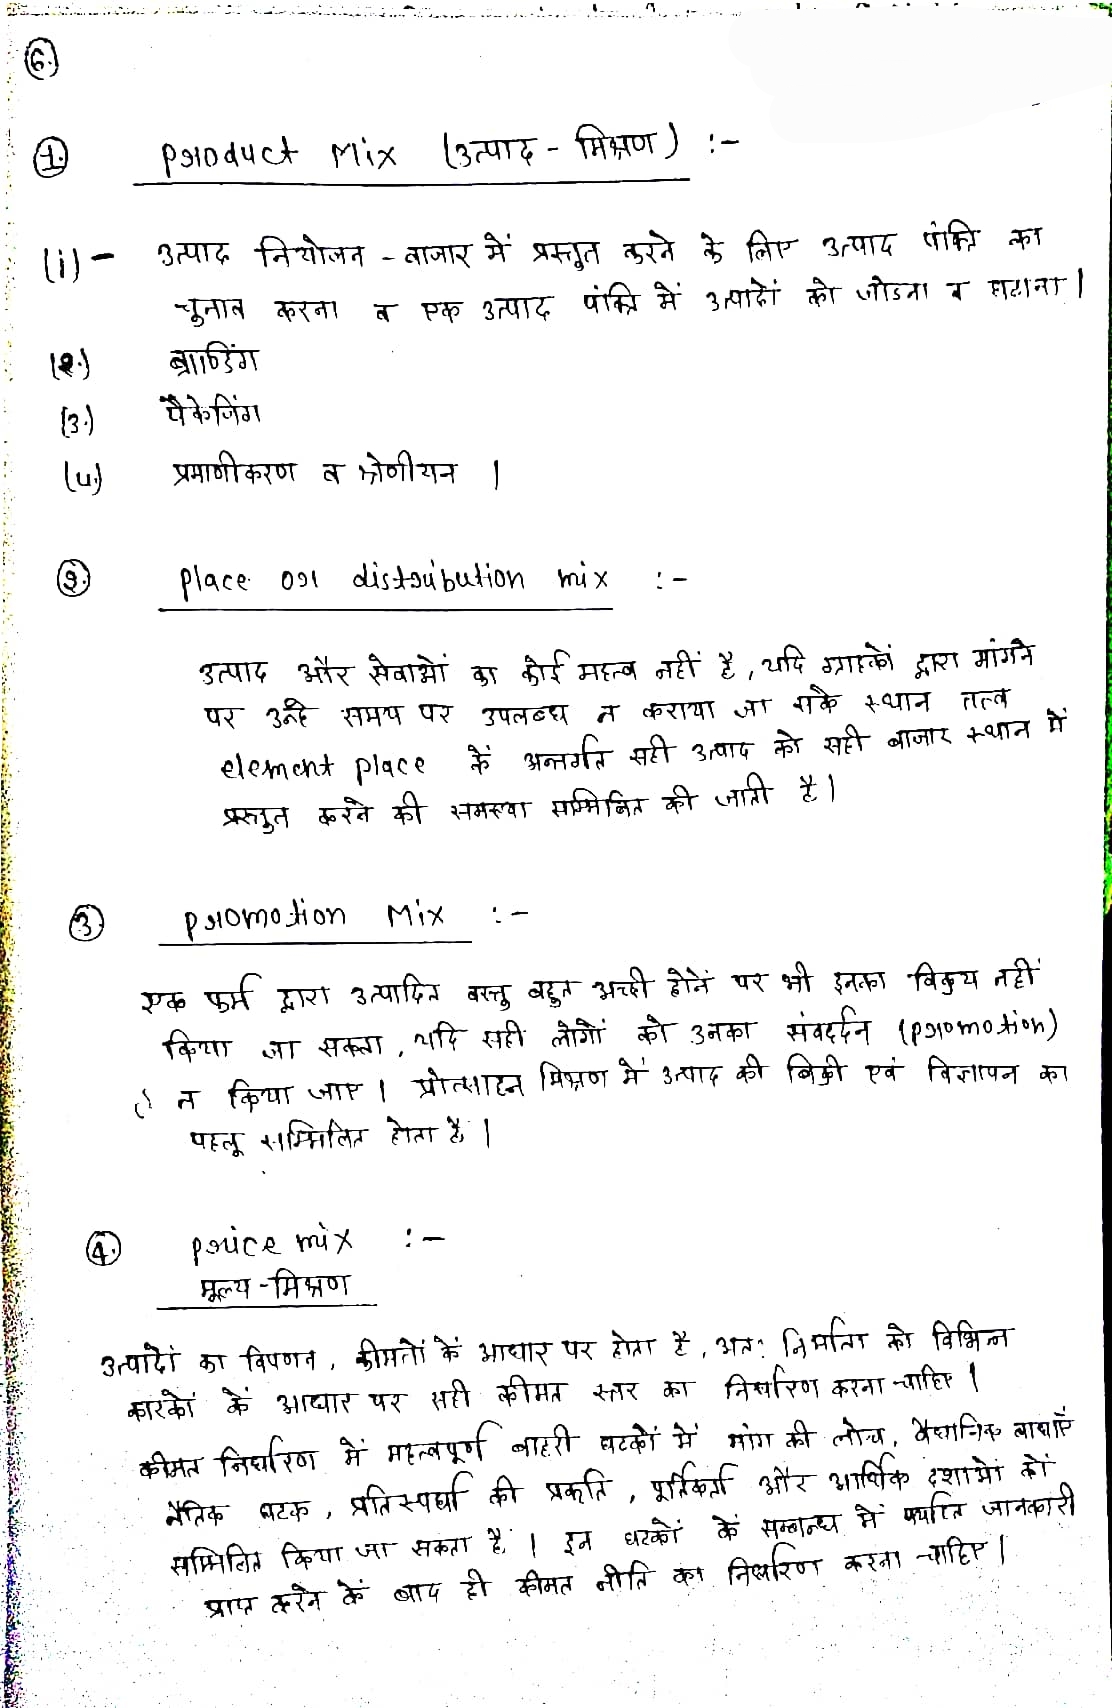 6.
1. Product Mix (उत्पाद - मिश्रण) :-
(i) - उत्पाद नियोजन - बाजार में प्रस्तुत करने के लिए उत्पाद पंक्ति का
चुनाव करना व एक उत्पाद पंक्ति में उत्पादों को जोडना व घटाना।
(2.) ब्राण्डिंग
(3.) पैकेजिंग
(4.) प्रमाणीकरण व श्रेणीयन ।
2. Place or distribution mix :-
उत्पाद और सेवाओं का कोई महत्व नहीं है, यदि ग्राहकों द्वारा मांगने
पर उन्हे समय पर उपलब्ध न कराया जा सके स्थान तत्व
element place कें अन्तर्गत सही उत्पाद को सही बाजार स्थान में
प्रस्तुत करने की समस्या सम्मिलित की जाती है।
3. Promotion Mix :-
एक फर्म द्वारा उत्पादित वस्तु बहुत अच्छी होनें पर भी इनका विक्रय नहीं
किया जा सकता, यदि सही लोगों को उनका संवर्द्दन (promotion)
न किया जाए । प्रोत्साहन मिश्रण में उत्पाद की बिक्री एवं विज्ञापन का
पहलू सम्मिलित होता है ।
4. price mix :-
मूल्य - मिश्रण
उत्पादों का विपणन, कीमतों कें आधार पर होता है, अतः निर्माता को विभिन्न
कारकों कें आधार पर सही कीमत स्तर का निर्धारण करना चाहिए ।
कीमत निर्धारण में महत्वपूर्ण बाहरी घटकों में मांग की लोच, वैधानिक बाधाएँ
नैतिक घटक, प्रतिस्पर्धा की प्रकृति, पूर्तिकर्ता और आर्थिक दशाओं कों
सम्मिलित किया जा सकता है । इन घटकों कें सम्बन्ध में पर्याप्त जानकारी
प्राप्त करने कें बाद ही कीमत नीति का निर्धारण करना चाहिए ।